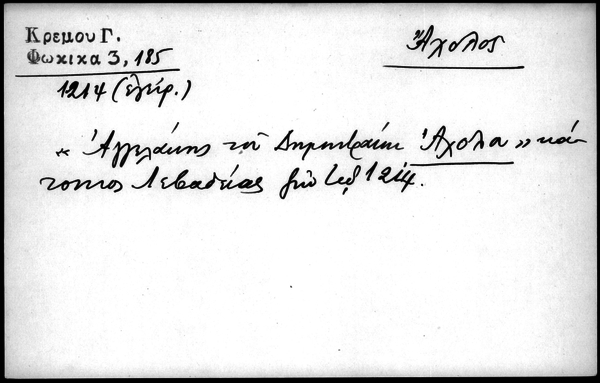 Κρεμου Γ.
Φωκικα 3, 185
1214 (ἐγείρ.)
Ἄχολος
« Ἀγγελάκης τοῦ Δημητράκη Ἄχολου » κά-
τοικος Λεβαδείας 1214.